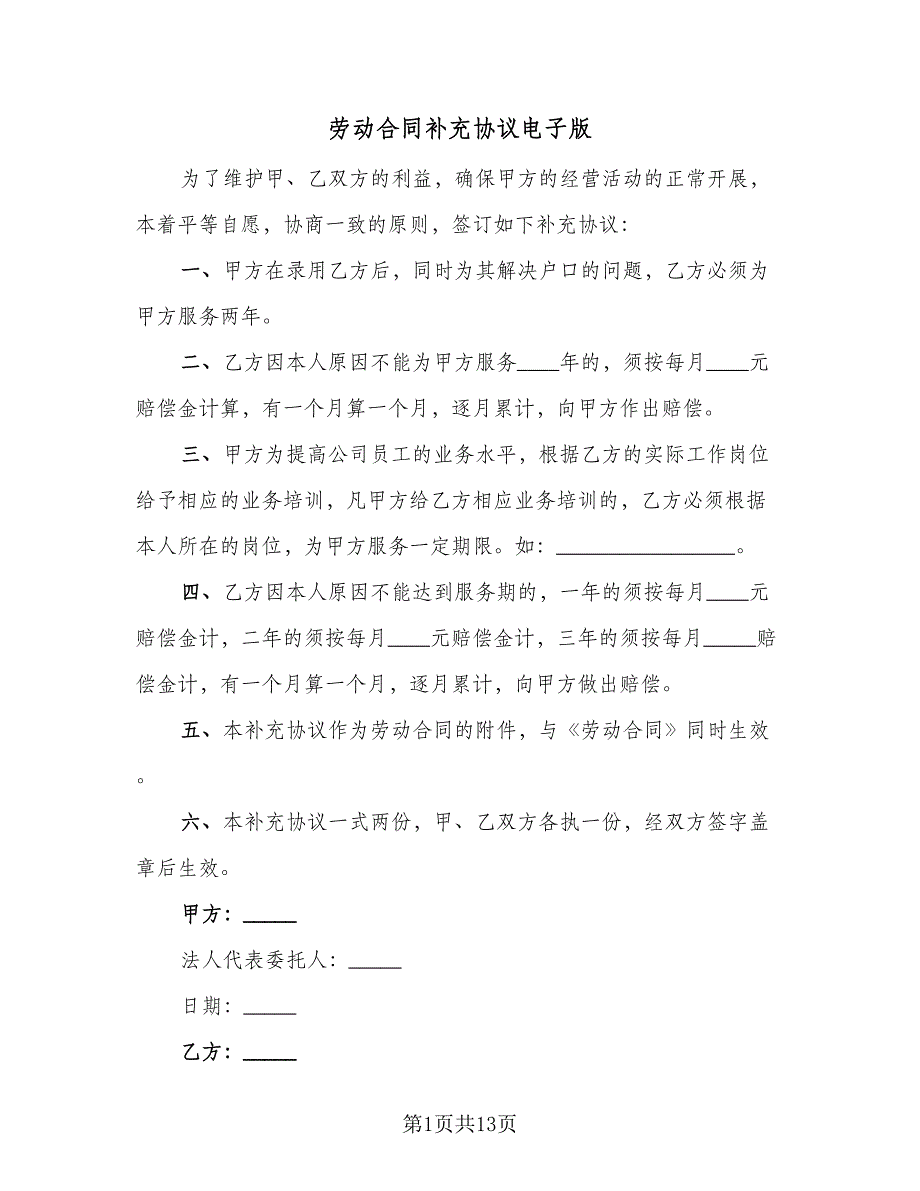 劳动合同补充协议电子版
为了维护甲、乙双方的利益，确保甲方的经营活动的正常开展，
本着平等自愿，协商一致的原则，签订如下补充协议：
一、甲方在录用乙方后，同时为其解决户口的问题，乙方必须为
甲方服务两年。
二、乙方因本人原因不能为甲方服务____年的，须按每月____元
赔偿金计算，有一个月算一个月，逐月累计，向甲方作出赔偿。
三、甲方为提高公司员工的业务水平，根据乙方的实际工作岗位
给予相应的业务培训，凡甲方给乙方相应业务培训的，乙方必须根据
本人所在的岗位，为甲方服务一定期限。如：_________________。
四、乙方因本人原因不能达到服务期的，一年的须按每月____元
赔偿金计，二年的须按每月____元赔偿金计，三年的须按每月_____赔
偿金计，有一个月算一个月，逐月累计，向甲方做出赔偿。
五、本补充协议作为劳动合同的附件，与《劳动合同》同时生效
。
六、本补充协议一式两份，甲、乙双方各执一份，经双方签字盖
章后生效。
甲方：_____
法人代表委托人：_____
日期：_____
乙方：_____
第1页共13页